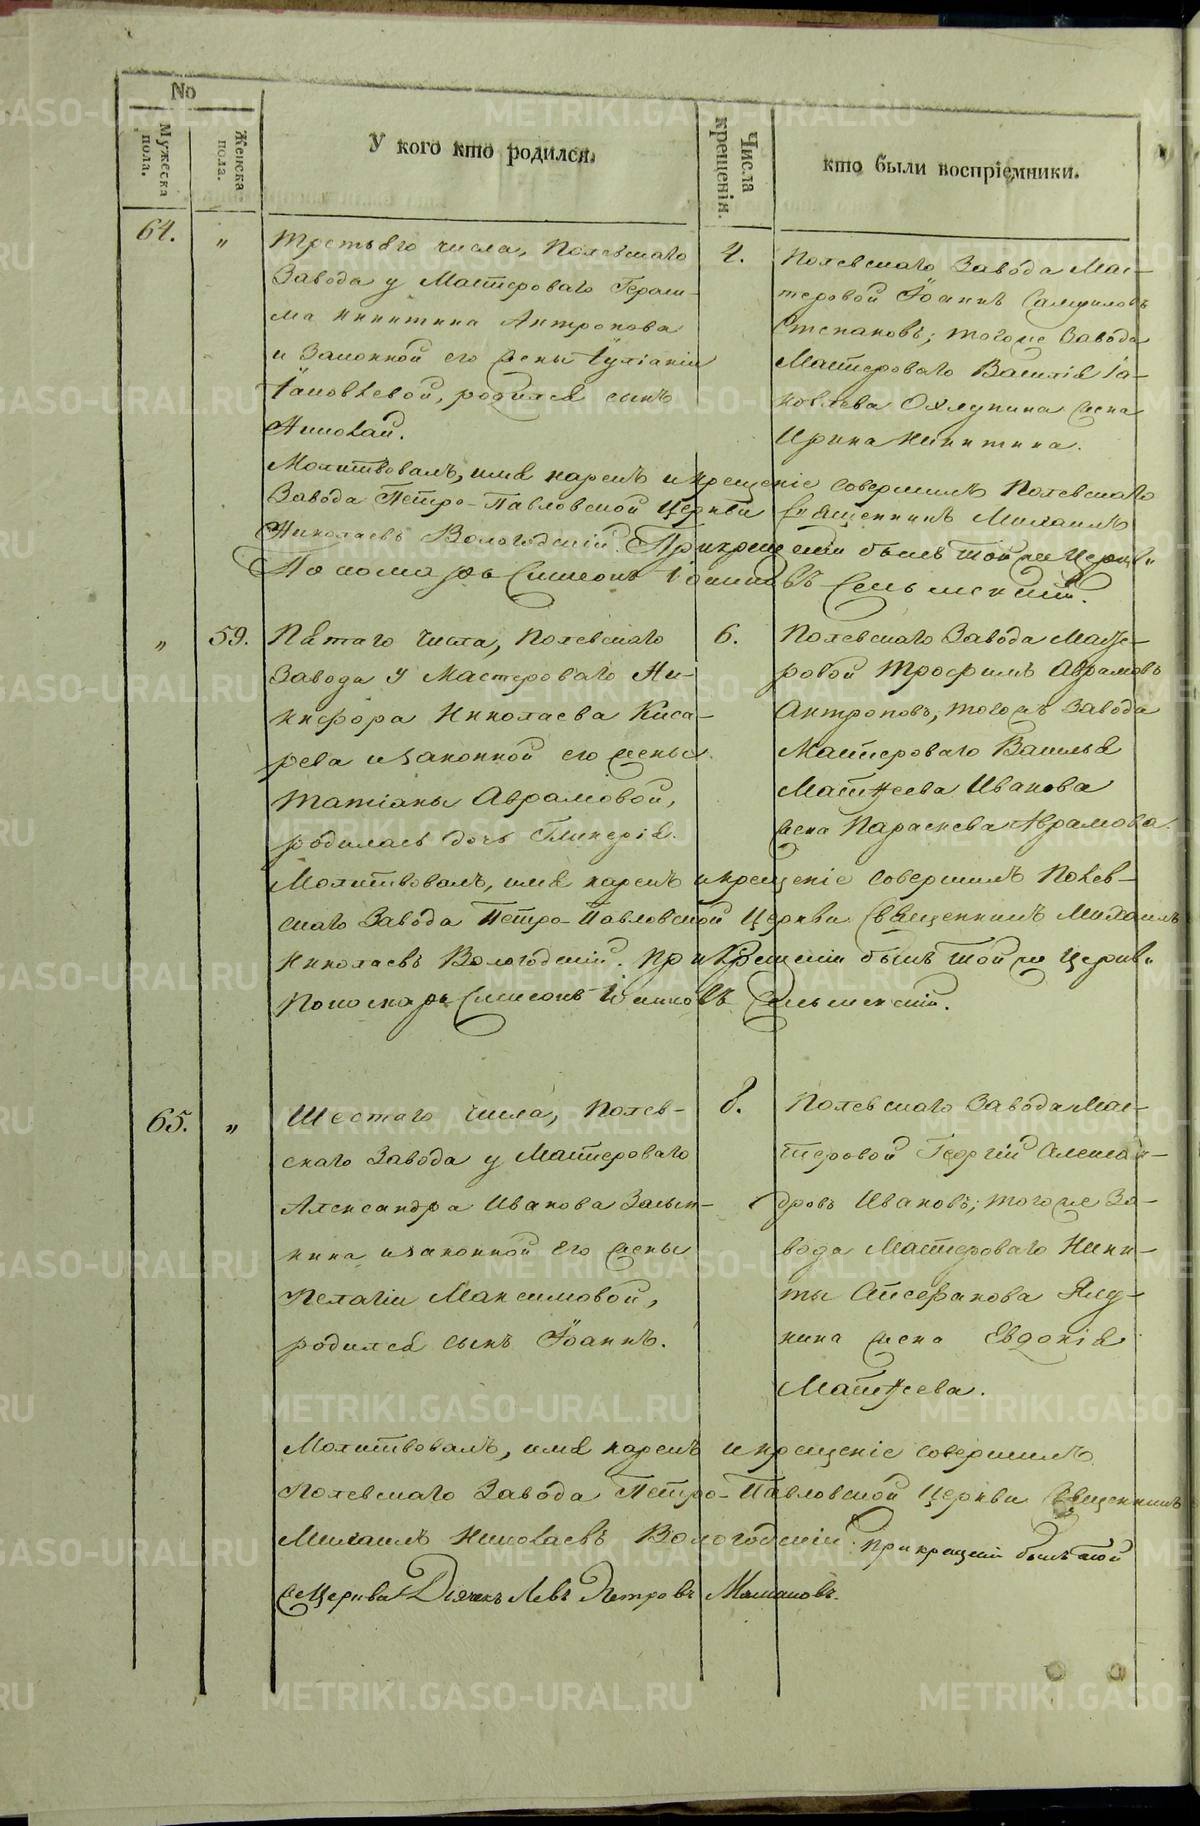 No
Мужеска пола.
Женска пола.
У кого кто родился.
Числа крещенія.
кто были воспріемники.
64. „ Третьяго числа, Полевскаго
Завода у Мастероваго Гераси-
ма Никитина Антропова
и Законной его жены Іуліаніи
Іаковлевой, родился сынъ
Николай.
4.
Полевскаго Завода Мас-
теровой Іоаннъ Самуиловъ
Степановъ; тогоже Завода
Мастероваго Василія Іа-
ковлева Охлупина жена
Ирина Никитина.
Молитвовалъ, имя нарекъ и крещеніе совершилъ Полевскаго
Завода Петро-Павловской Церкви Священникъ Михаилъ
Николаевъ Вологодскій. При крещеніи былъ той же Церкви
Пономарь Симеонъ Іоанновъ Сельменскій.
„ 59. Пятаго числа, Полевскаго
Завода у Мастероваго Ни-
кифора Николаева Киса-
рева и законной его жены
Татіаны Аврамовой,
родилась дочь Гликерія.
6.
Полевскаго Завода Масте-
ровой Трофимъ Аврамовъ
Антроповъ, тогожъ Завода
Мастероваго Василья
Матѳеева Иванова
жена Параскева Аврамова.
Молитвовалъ, имя нарекъ и крещеніе совершилъ Полев-
скаго Завода Петро-Павловской Церкви Священникъ Михаилъ
Николаевъ Вологодскій. При крещеніи былъ той же Церкви
Пономарь Симеонъ Іоанновъ Сельменскій.
65. „ Шестаго числа, Полев-
скаго Завода у Мастероваго
Александра Иванова Засып-
кина и законной его жены
Пелагіи Максимовой,
родился сынъ Іоаннъ.
8.
Полевскаго Завода Мас-
теровой Георгій Алексан-
дровъ Ивановъ; тогоже За-
вода Мастероваго Ники-
ты
кина жена Евдокія
Матѳеева.
Молитвовалъ, имя нарекъ и крещеніе совершилъ
Полевскаго Завода Петро-Павловской Церкви Священникъ
Михаилъ Николаевъ Вологодскій. При крещеніи былъ той
же Церкви Дьячекъ Левъ Петровъ
METRIKI.GASO-URAL.RU